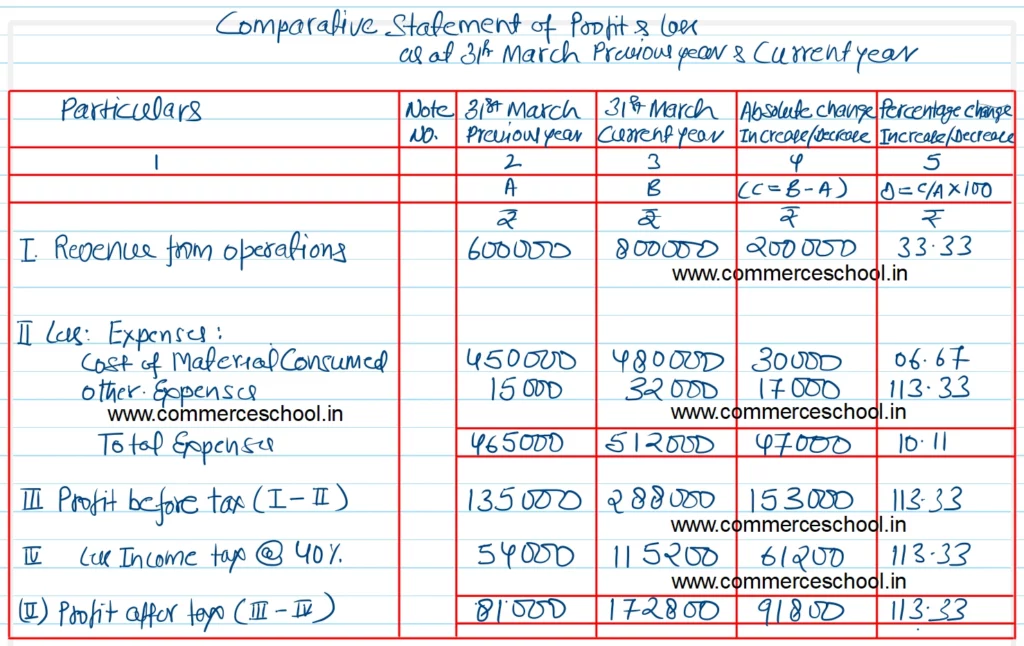 Comparative Statement of Profit & loss
as at 31st March Previous year & Current year
Particulars Note No. 31st March Previous year 31st March Current year Absolute change Increase/Decrease Percentage change Increase/Decrease
1 2 3 4 5
A B (C = B - A) D = C/A × 100
₹ ₹ ₹ ₹
I. Revenue from operations 600000 800000 200000 33.33
www.commerceschool.in
II Less: Expenses:
Cost of Material Consumed 450000 480000 30000 06.67
Other Expenses 15000 32000 17000 113.33
www.commerceschool.in www.commerceschool.in
Total Expenses 465000 512000 47000 10.11
III Profit before tax (I - II) 135000 288000 153000 113.33
www.commerceschool.in
IV Less Income tax @ 40% 54000 115200 61200 113.33
www.commerceschool.in
(V) Profit after tax (III - IV) 81000 172800 91800 113.33